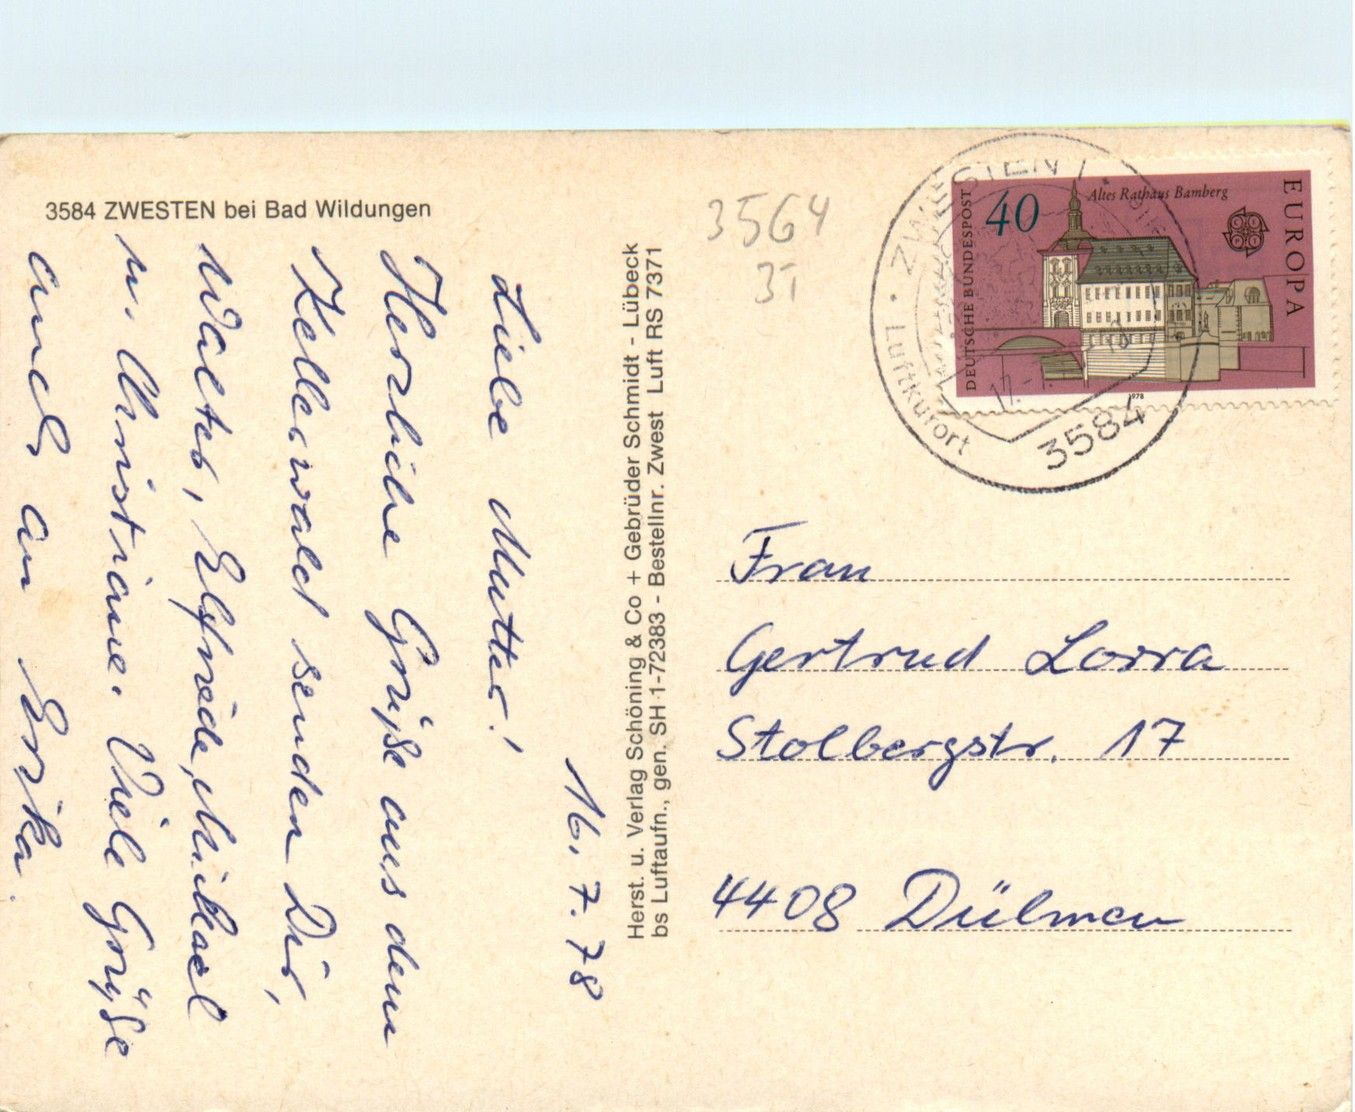 3584 ZWESTEN bei Bad Wildungen
16.7.78
Liebe Mutter!
Herzliche Grüße aus dem
Kellerwald senden Dir,
Walter, Elfriede, Michael
u. Christiane. Viele Grüße
auch an Erika.
Herst. u. Verlag Schöning & Co + Gebrüder Schmidt - Lübeck
bs Luftaufn., gen. SH 1-72383 - Bestellnr. Zwest Luft RS 7371
3564
3T
DEUTSCHE BUNDESPOST
40
Altes Rathaus Bamberg
EUROPA
1978
ZWESTEN 1
Luftkurort
3584
Frau
Gertrud Lorra
Stolbergstr. 17
4408 Dülmen